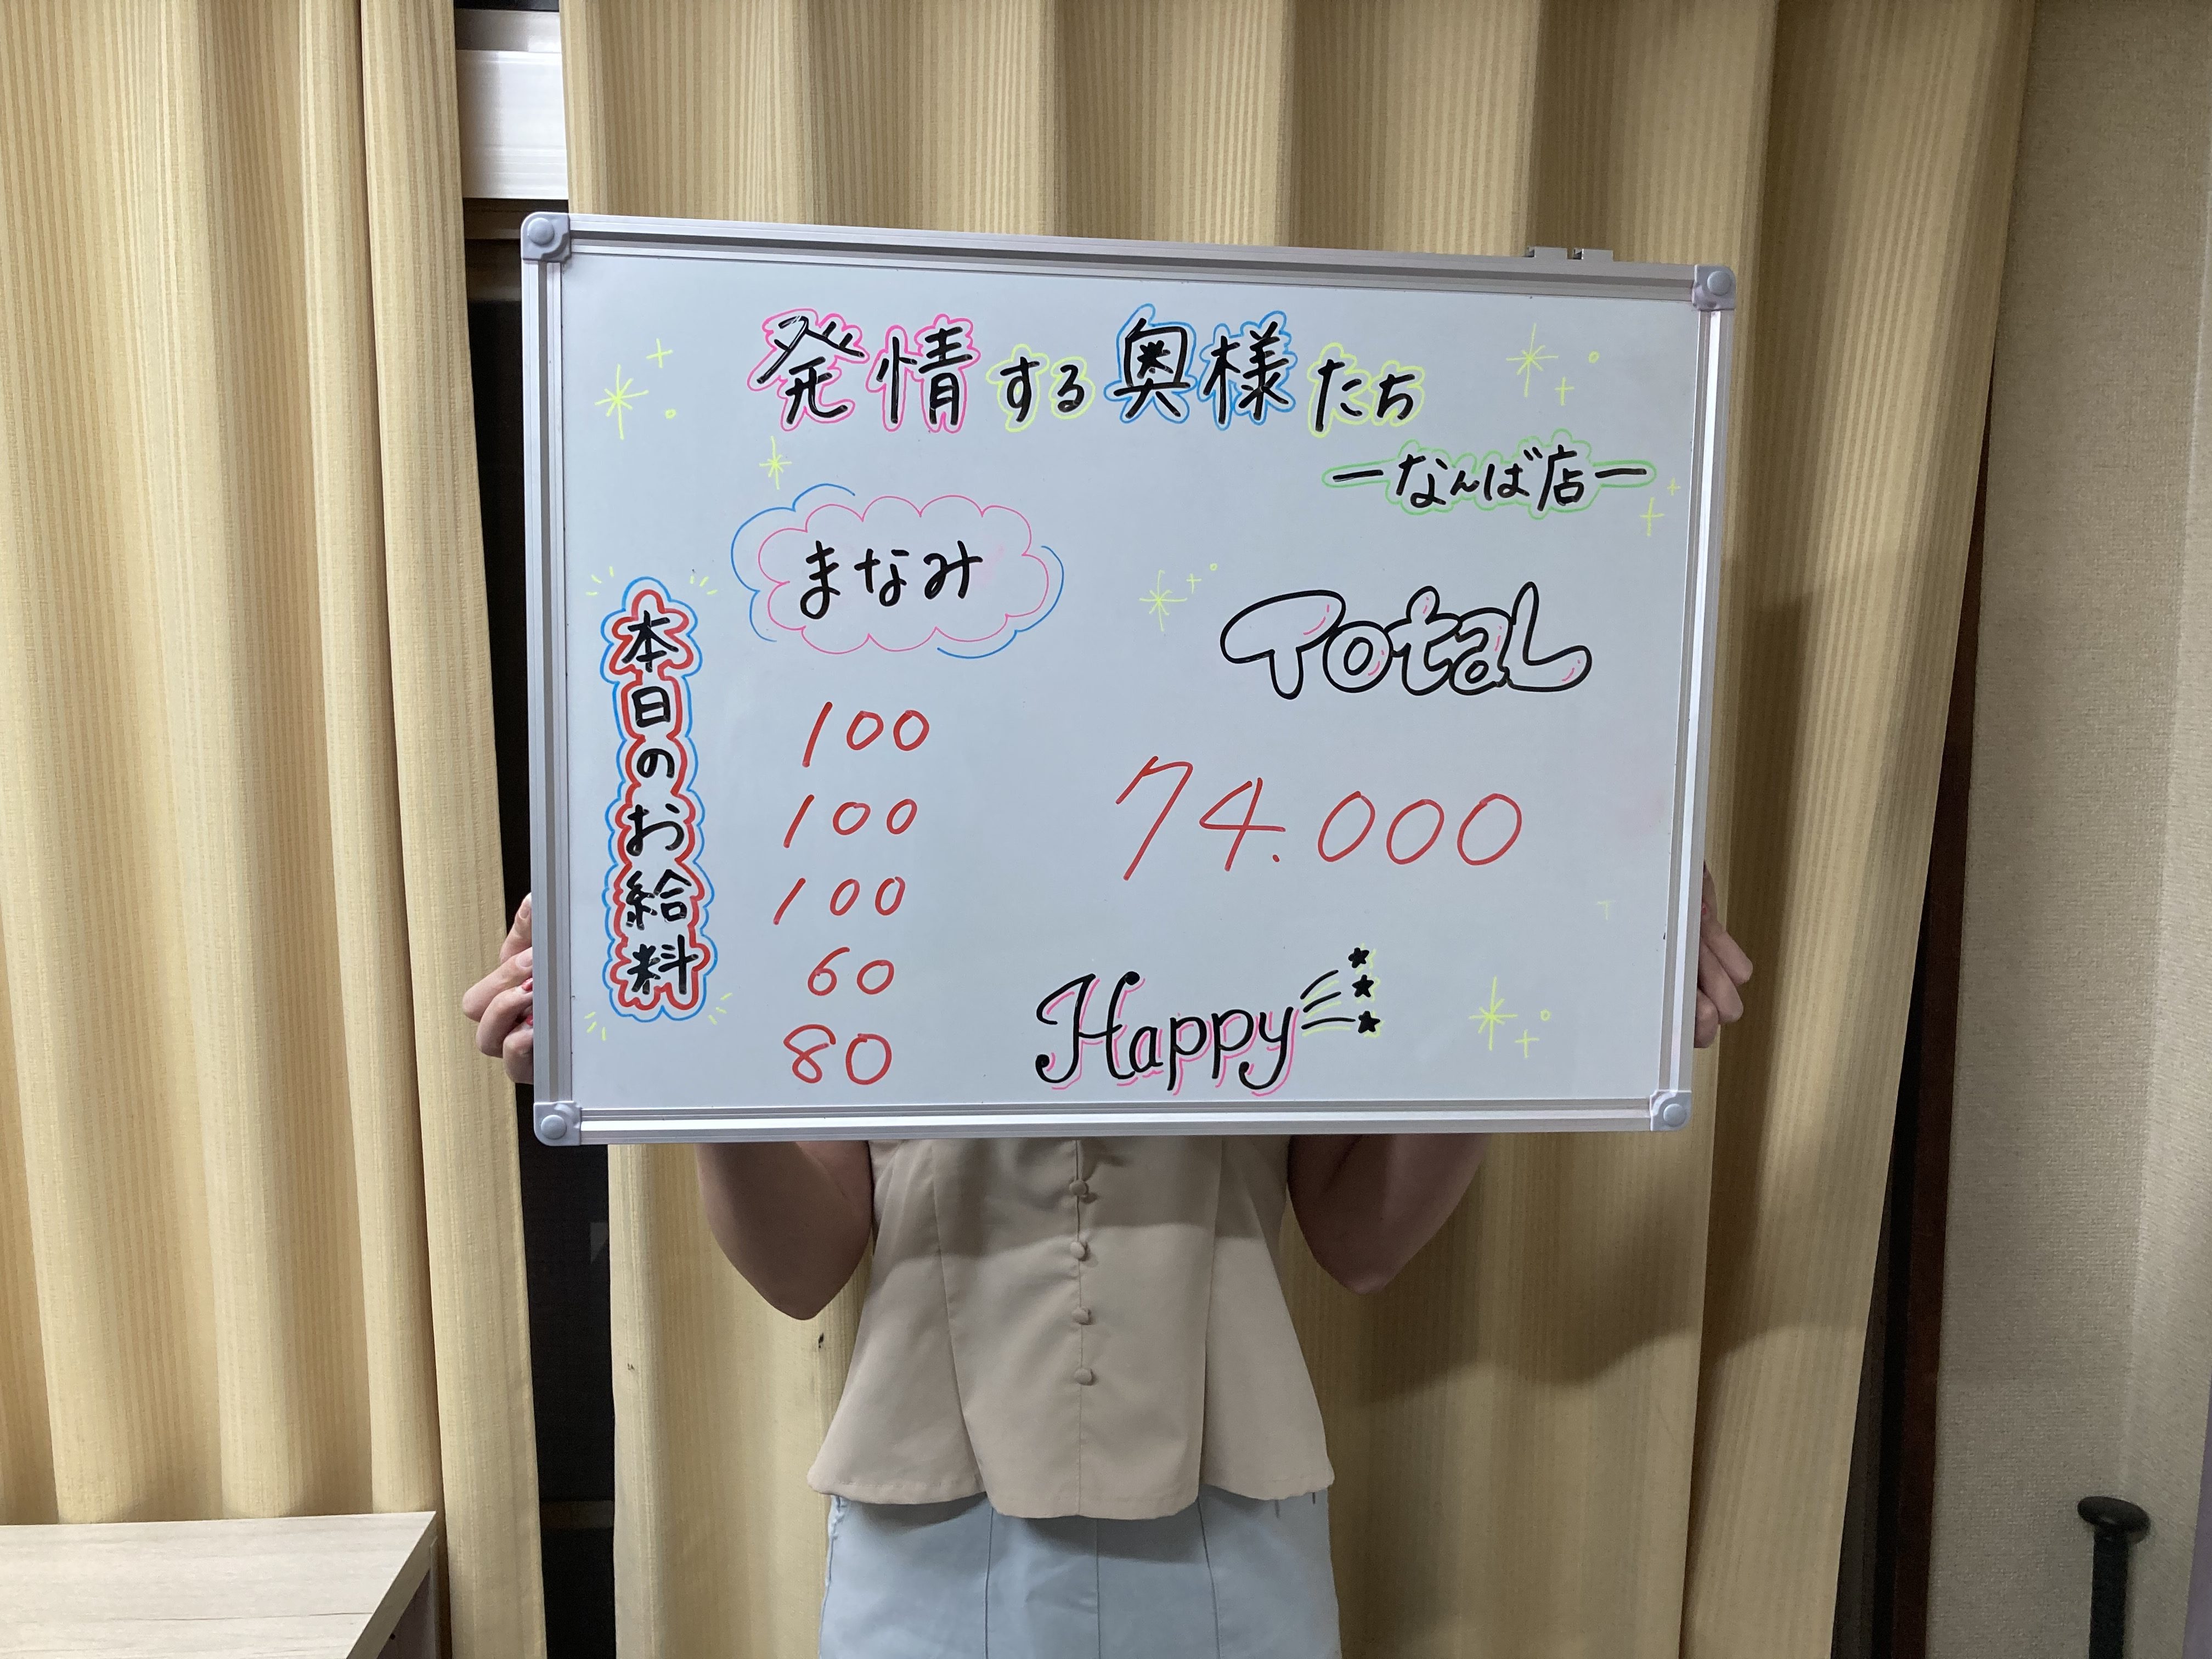 発情する奥様たち
ーなんば店ー
まなみ
本日のお給料
100
100
100
60
80
Total
74.000
Happy